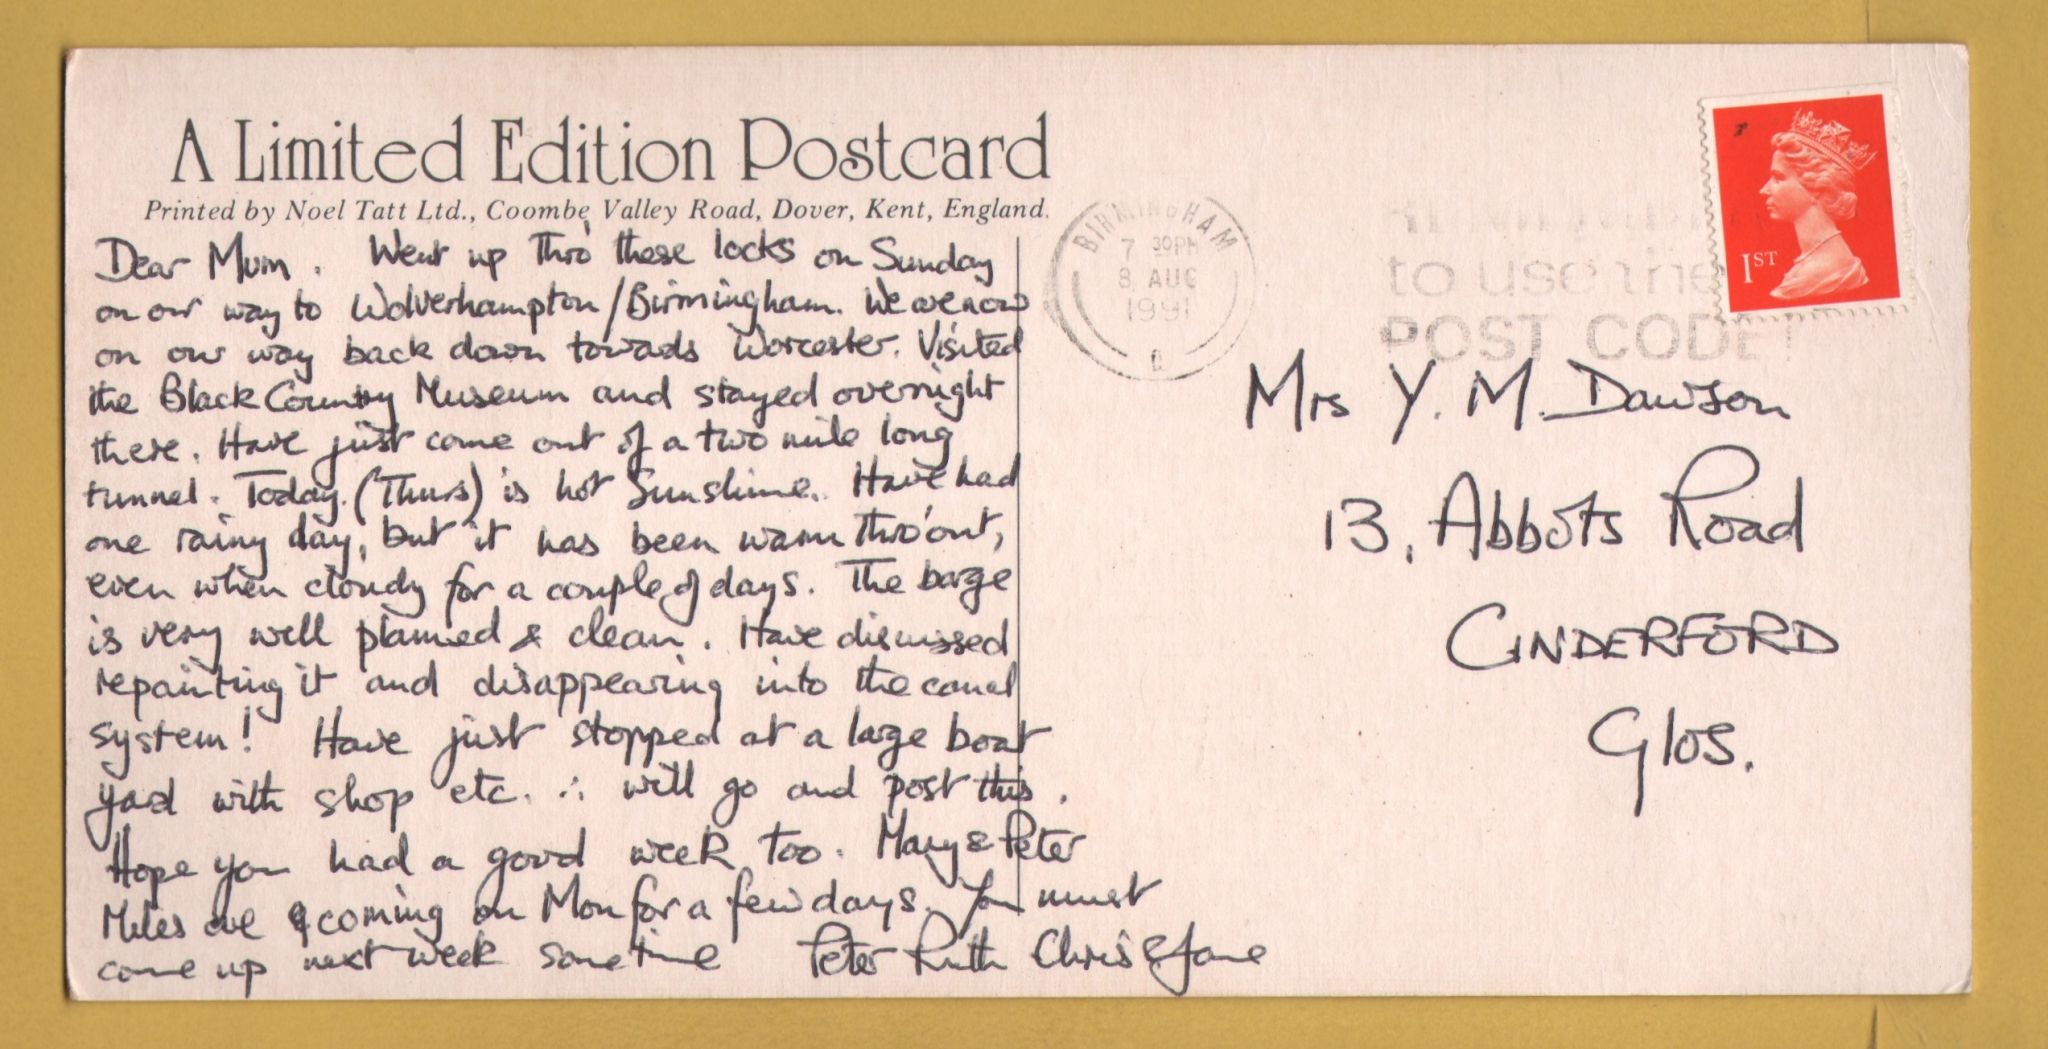 A Limited Edition Postcard
Printed by Noel Tatt Ltd., Coombe Valley Road, Dover, Kent, England.
Dear Mum. Went up thro' these locks on Sunday
on our way to Wolverhampton/Birmingham. We are now
on our way back down towards Worcester. Visited
the Black Country Museum and stayed overnight
there. Have just come out of a two mile long
tunnel. Today (Thurs) is hot sunshine. Have had
one rainy day, but it has been warm thro'out,
even when cloudy for a couple of days. The barge
is very well planned & clean. Have discussed
repainting it and disappearing into the canal
system! Have just stopped at a large boat
yard with shop etc. ∴ will go and post this.
Hope you had a good week too. Mary & Peter
Miles are coming on Mon for a few days. You must
come up next week sometime Peter Ruth Chris & Jane
BIRMINGHAM
7 30PM
8 AUG
1991
to use the
POST CODE!
1ST
Mrs Y. M. Dawson
13, Abbots Road
CINDERFORD
Glos.